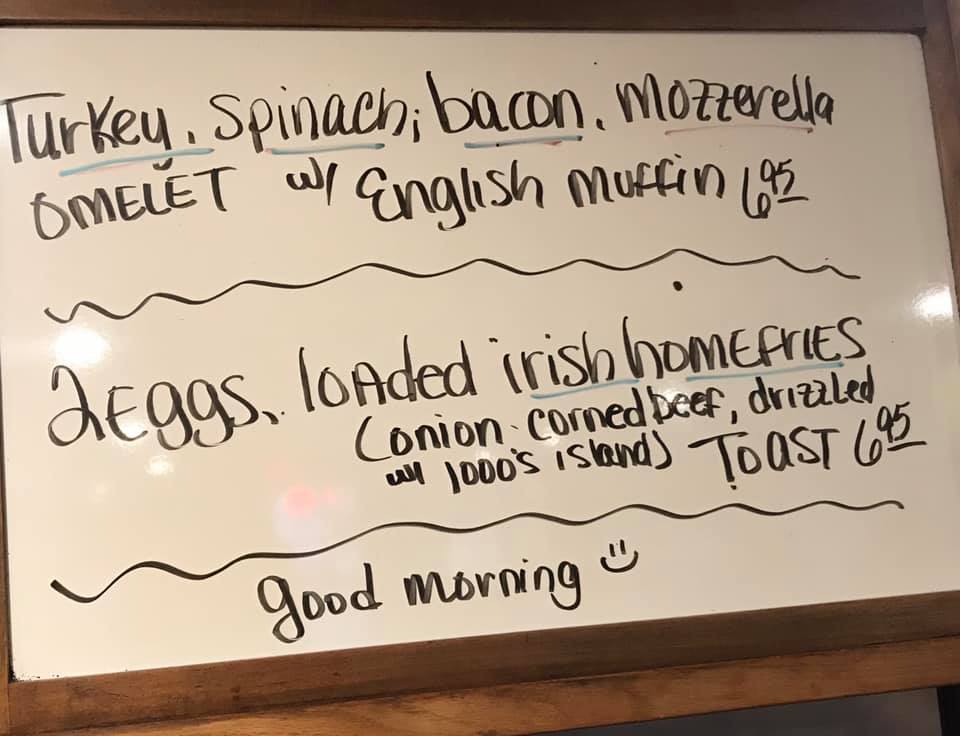 Turkey, Spinach, bacon, Mozzerella
OMELET w/ English Muffin 6.95
2 Eggs, loaded irish homefries
(onion, corned beef, drizzled
w/ 1000's island) TOAST 6.95
good morning :)